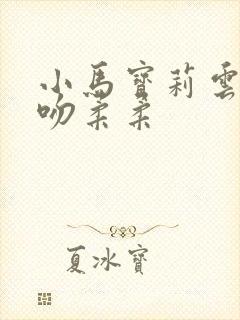 小馬寶莉雲
吻柔柔
夏冰寶